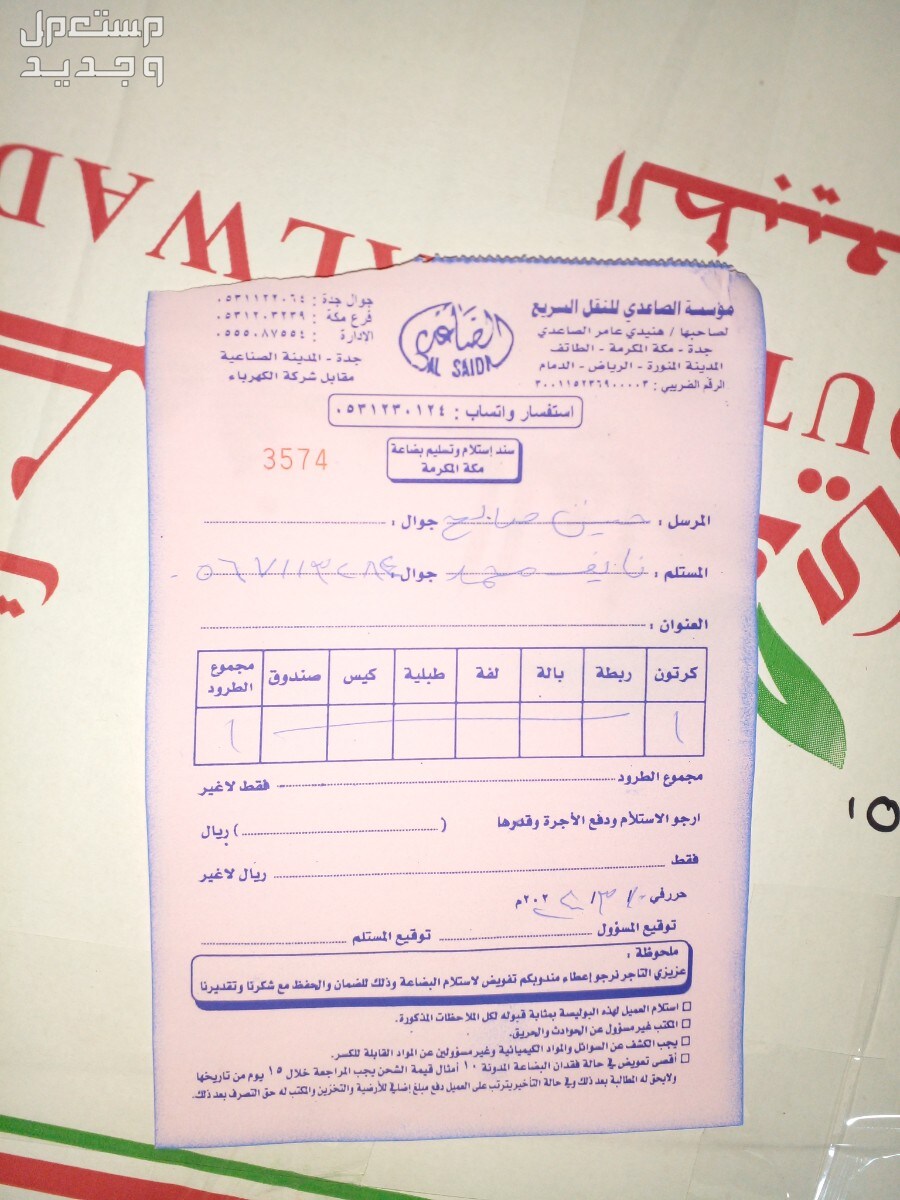 مستعمل
وجديد
ALWAD
مؤسسة الصاعدي للنقل السريع
لصاحبها / هنيدي عامر الصاعدي
جدة - مكة المكرمة - الطائف
المدينة المنورة - الرياض - الدمام
الرقم الضريبي : ٣٠٠١١٥٢٣٦٩٠٠٠٠٣
الصاعدي
AL SAIDI
جوال جدة : ٠٥٣١١٢٢٠٦٤
فرع مكة : ٠٥٣١٢٠٣٢٣٩
الادارة : ٠٥٥٥٠٨٧٥٥٤
جدة - المدينة الصناعية
مقابل شركة الكهرباء
استفسار واتساب : ٠٥٣١٢٣٠١٢٤
سند إستلام وتسليم بضاعة
مكة المكرمة
3574
المرسل : حسين صالح جوال :
المستلم : نايف محمد جوال :
العنوان :
كرتون ربطة بالة لفة طبلية كيس صندوق مجموع الطرود
١ ١
مجموع الطرود فقط لاغير
ارجو الاستلام ودفع الأجرة وقدرها ( ) ريال
فقط ريال لاغير
حرر في
توقيع المسؤول توقيع المستلم
ملحوظة :
عزيزي التاجر نرجو إعطاء مندوبكم تفويض لاستلام البضاعة وذلك للضمان والحفظ مع شكرنا وتقديرنا
استلام العميل لهذه البوليصة بمثابة قبوله لكل الملاحظات المذكورة.
المكتب غير مسؤول عن الحوادث والحريق.
يجب الكشف عن السوائل والمواد الكيميائية وغير مسؤولين عن المواد القابلة للكسر.
أقصى تعويض في حالة فقدان البضاعة المدونة ١٠ أمثال قيمة الشحن يجب المراجعة خلال ١٥ يوم من تاريخها
ولايحق له المطالبة بعد ذلك وفي حالة التأخير يترتب على العميل دفع مبلغ إضافي للأرضية والتخزين والمكتب له حق التصرف بعد ذلك.